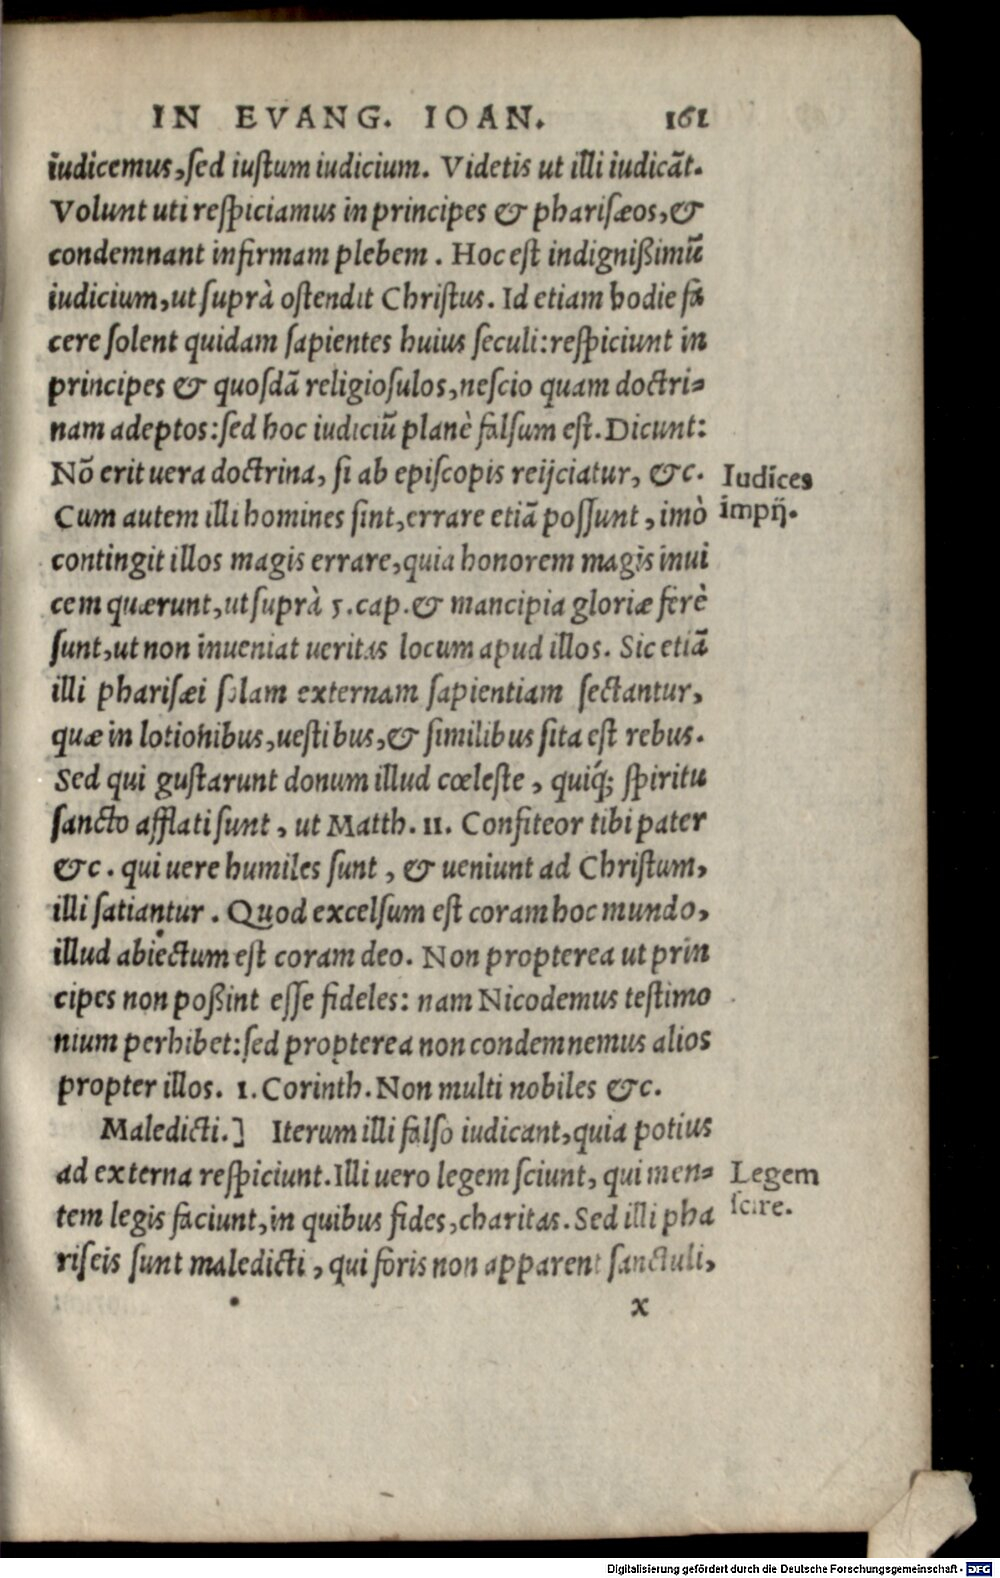 IN EVANG. IOAN. 161
iudicemus, sed iustum iudicium. Videtis ut illi iudicãt.
Volunt uti respiciamus in principes & pharisæos, &
condemnant infirmam plebem. Hoc est indignißimũ
iudicium, ut suprà ostendit Christus. Id etiam hodie fa
cere solent quidam sapientes huius seculi: respiciunt in
principes & quosdã religiosulos, nescio quam doctri-
nam adeptos: sed hoc iudiciũ planè falsum est. Dicunt:
Nõ erit uera doctrina, si ab episcopis reijciatur, &c.
Iudices
impij.
Cum autem illi homines sint, errare etiã possunt, imò
contingit illos magis errare, quia honorem magis inui
cem quærunt, ut suprà 5. cap. & mancipia gloriæ ferè
sunt, ut non inueniat ueritas locum apud illos. Sic etiã
illi pharisæi solam externam sapientiam sectantur,
quæ in lotionibus, uestibus, & similibus sita est rebus.
Sed qui gustarunt donum illud cœleste, quiq́; spiritu
sancto afflati sunt, ut Matth. 11. Confiteor tibi pater
&c. qui uere humiles sunt, & ueniunt ad Christum,
illi satiantur. Quod excelsum est coram hoc mundo,
illud abiectum est coram deo. Non propterea ut prin
cipes non poßint esse fideles: nam Nicodemus testimo
nium perhibet: sed propterea non condemnemus alios
propter illos. 1. Corinth. Non multi nobiles &c.
Maledicti.] Iterum illi falso iudicant, quia potius
ad externa respiciunt. Illi uero legem sciunt, qui men-
Legem
scire.
tem legis faciunt, in quibus fides, charitas. Sed illi pha
riseis sunt maledicti, qui foris non apparent sanctuli,
x
Digitalisierung gefördert durch die Deutsche Forschungsgemeinschaft - DFG